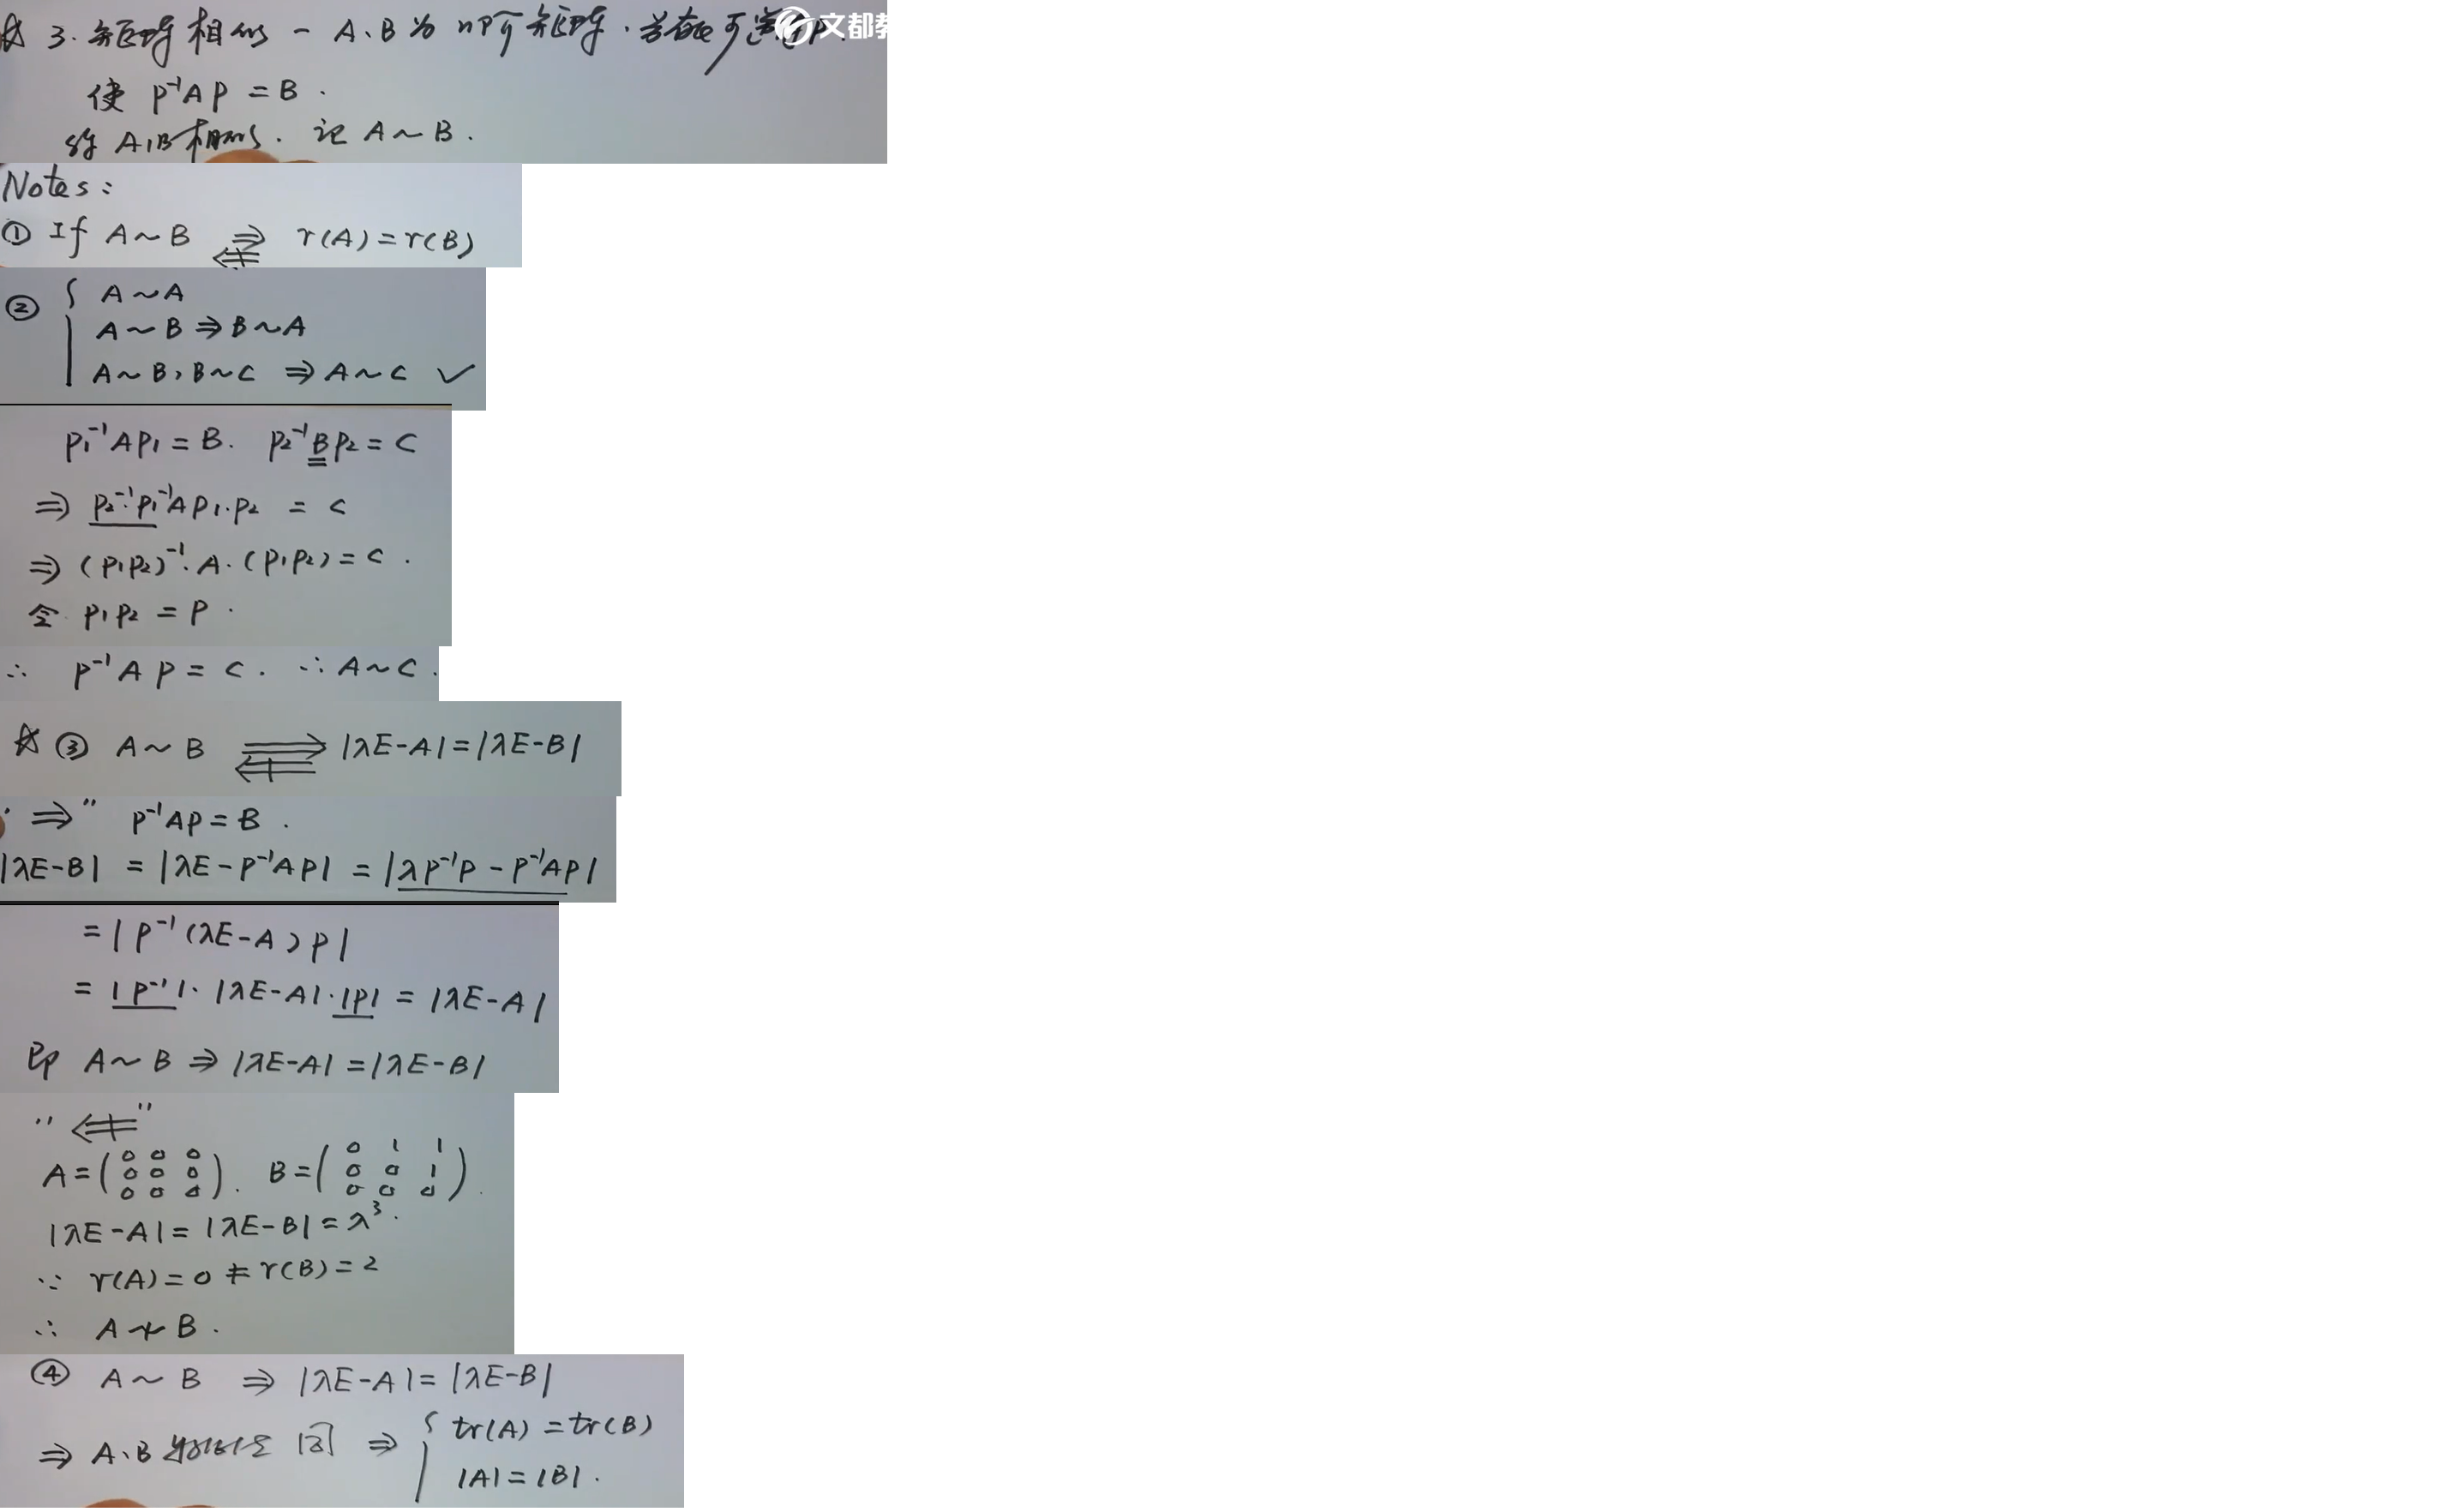 ☆ 3. 矩阵相似 - A、B 为 n阶矩阵. 若存在可逆阵P.
文都教
使 P⁻¹AP = B .
称 A,B相似. 记 A ~ B .
Notes:
① If A ~ B ⇒ r(A) = r(B)
⇍
② { A ~ A
A ~ B ⇒ B ~ A
A ~ B, B ~ C ⇒ A ~ C ✓
P₁⁻¹AP₁ = B. P₂⁻¹BP₂ = C
⇒ P₂⁻¹·P₁⁻¹AP₁·P₂ = C
⇒ (P₁P₂)⁻¹·A·(P₁P₂) = C .
令 P₁P₂ = P .
∴ P⁻¹AP = C . ∴ A ~ C .
☆ ③ A ~ B ⇒ |λE-A| = |λE-B|
⇍
"⇒" P⁻¹AP = B .
|λE-B| = |λE - P⁻¹AP| = |λP⁻¹P - P⁻¹AP|
= |P⁻¹(λE-A)P|
= |P⁻¹|·|λE-A|·|P| = |λE-A|
即 A ~ B ⇒ |λE-A| = |λE-B|
"⇍"
A = (0 0 0
0 0 0
0 0 0). B = (0 1 1
0 0 1
0 0 0).
|λE-A| = |λE-B| = λ³.
∵ r(A) = 0 ≠ r(B) = 2
∴ A ≁ B .
④ A ~ B ⇒ |λE-A| = |λE-B|
⇒ A、B 特征值同 ⇒ { tr(A) = tr(B)
|A| = |B| .